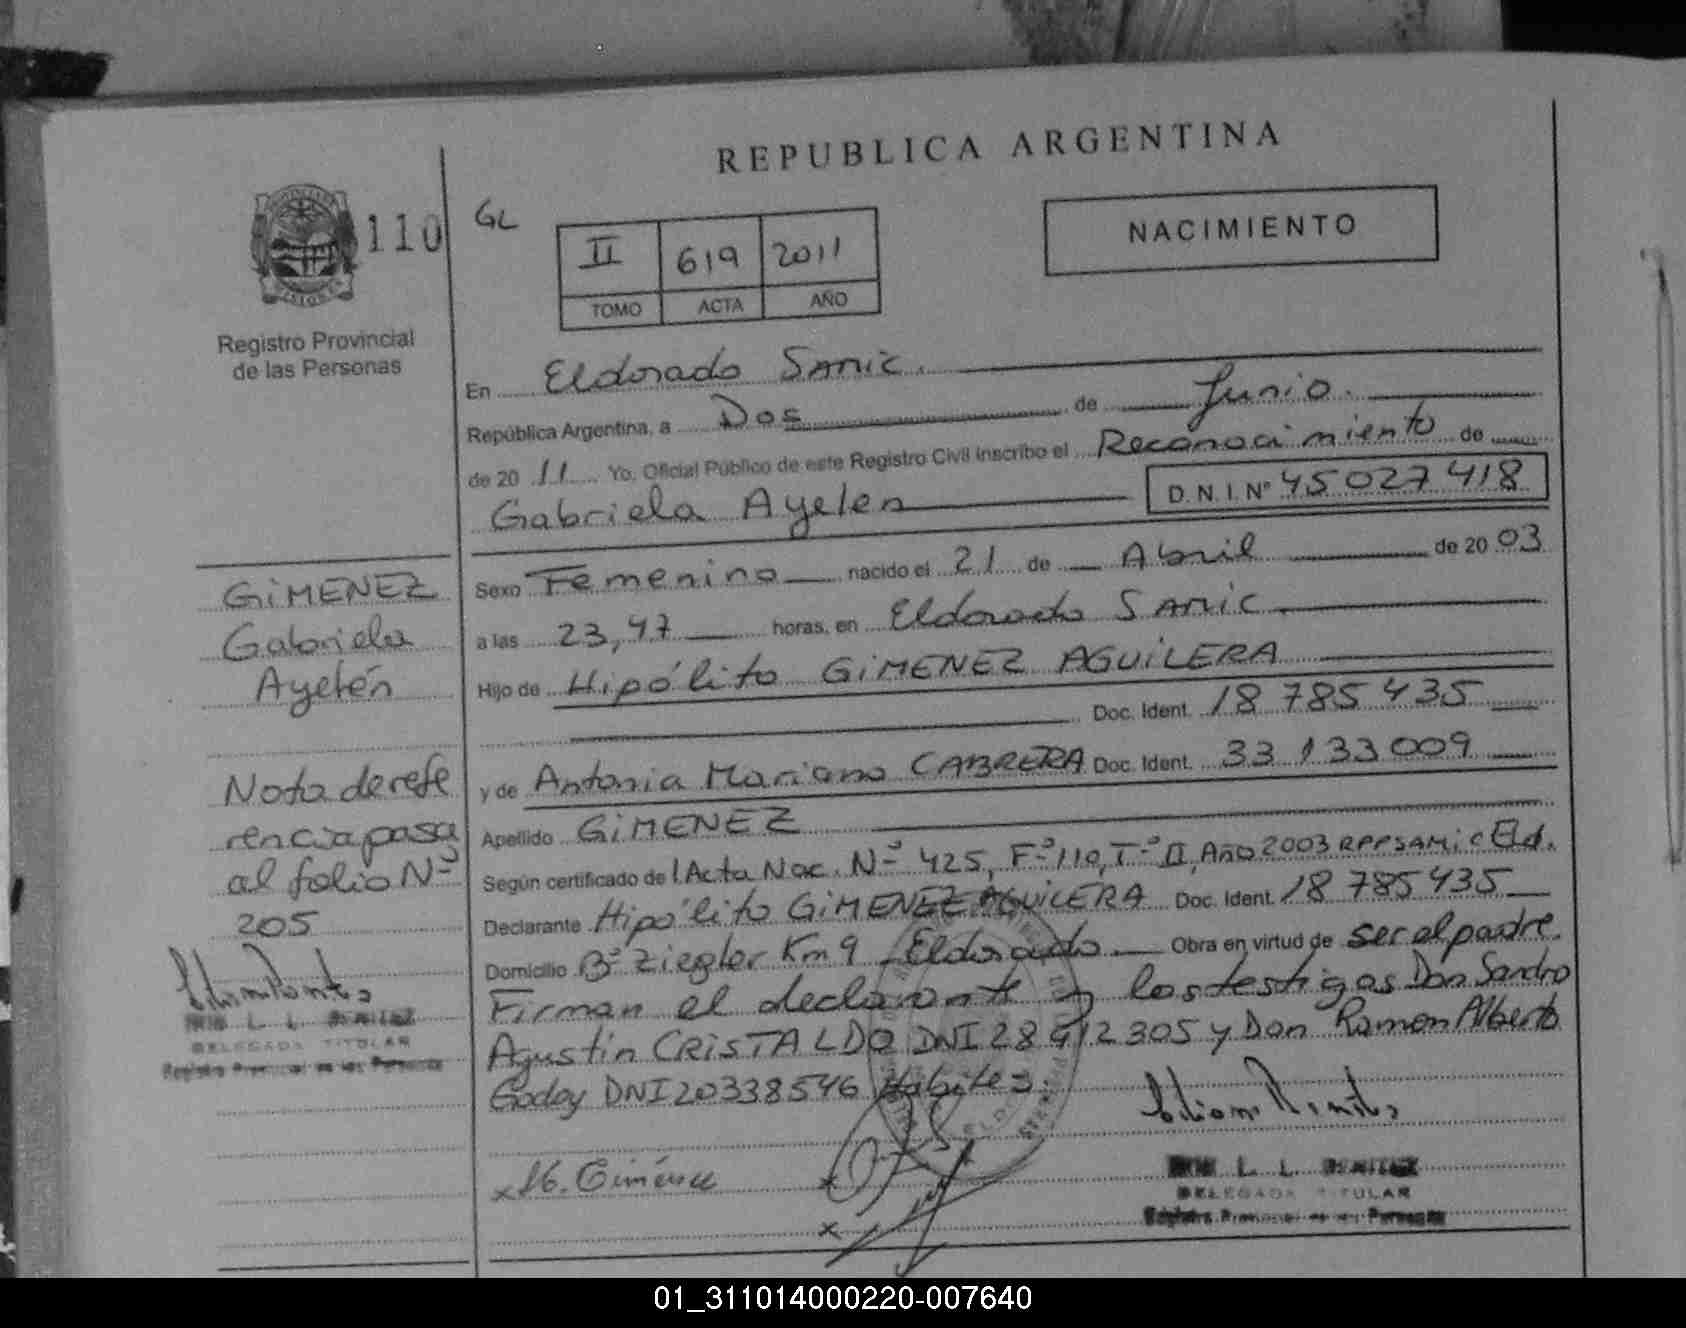 REPUBLICA ARGENTINA
110
GL
II 619 2011
TOMO ACTA AÑO
NACIMIENTO
Registro Provincial
de las Personas
En Eldorado SAMIC.
República Argentina, a Dos de Junio.
de 20 11 Yo, Oficial Público de este Registro Civil inscribo el Reconocimiento de
Gabriela Ayelen D.N.I. Nº 45 027 418
Sexo Femenino nacido el 21 de Abril de 20 03
a las 23,47 horas, en Eldorado SAMIC
Hijo de Hipólito GIMENEZ AGUILERA
Doc. Ident. 18 785 435
y de Antonia Mariana CABRERA Doc. Ident. 33 133 009
Apellido GIMENEZ
Según certificado de Acta Nac. Nº 425, Fº 110, Tº II, Año 2003 RPPSAMic Eld.
Declarante Hipólito GIMENEZ AGUILERA Doc. Ident. 18 785 435
Domicilio Bº Ziegler Km 9 Eldorado. Obra en virtud de ser el padre.
Firman el declarante y los testigos Don Sandro
Agustín CRISTALDO DNI 28 912 305 y Don Ramon Alberto
Godoy DNI 20338546 Habiles.
GIMENEZ
Gabriela
Ayelén
Nota de refe
rencia pasa
al folio Nº
205
L. L. BENITEZ
DELEGADA TITULAR
Registro Provincial de las Personas
x H. Giménez
x
x
L. L. BENITEZ
DELEGADA TITULAR
Registro Provincial de las Personas
01_311014000220-007640